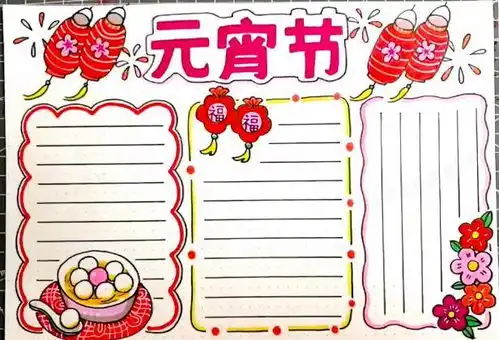 元宵节
福 福